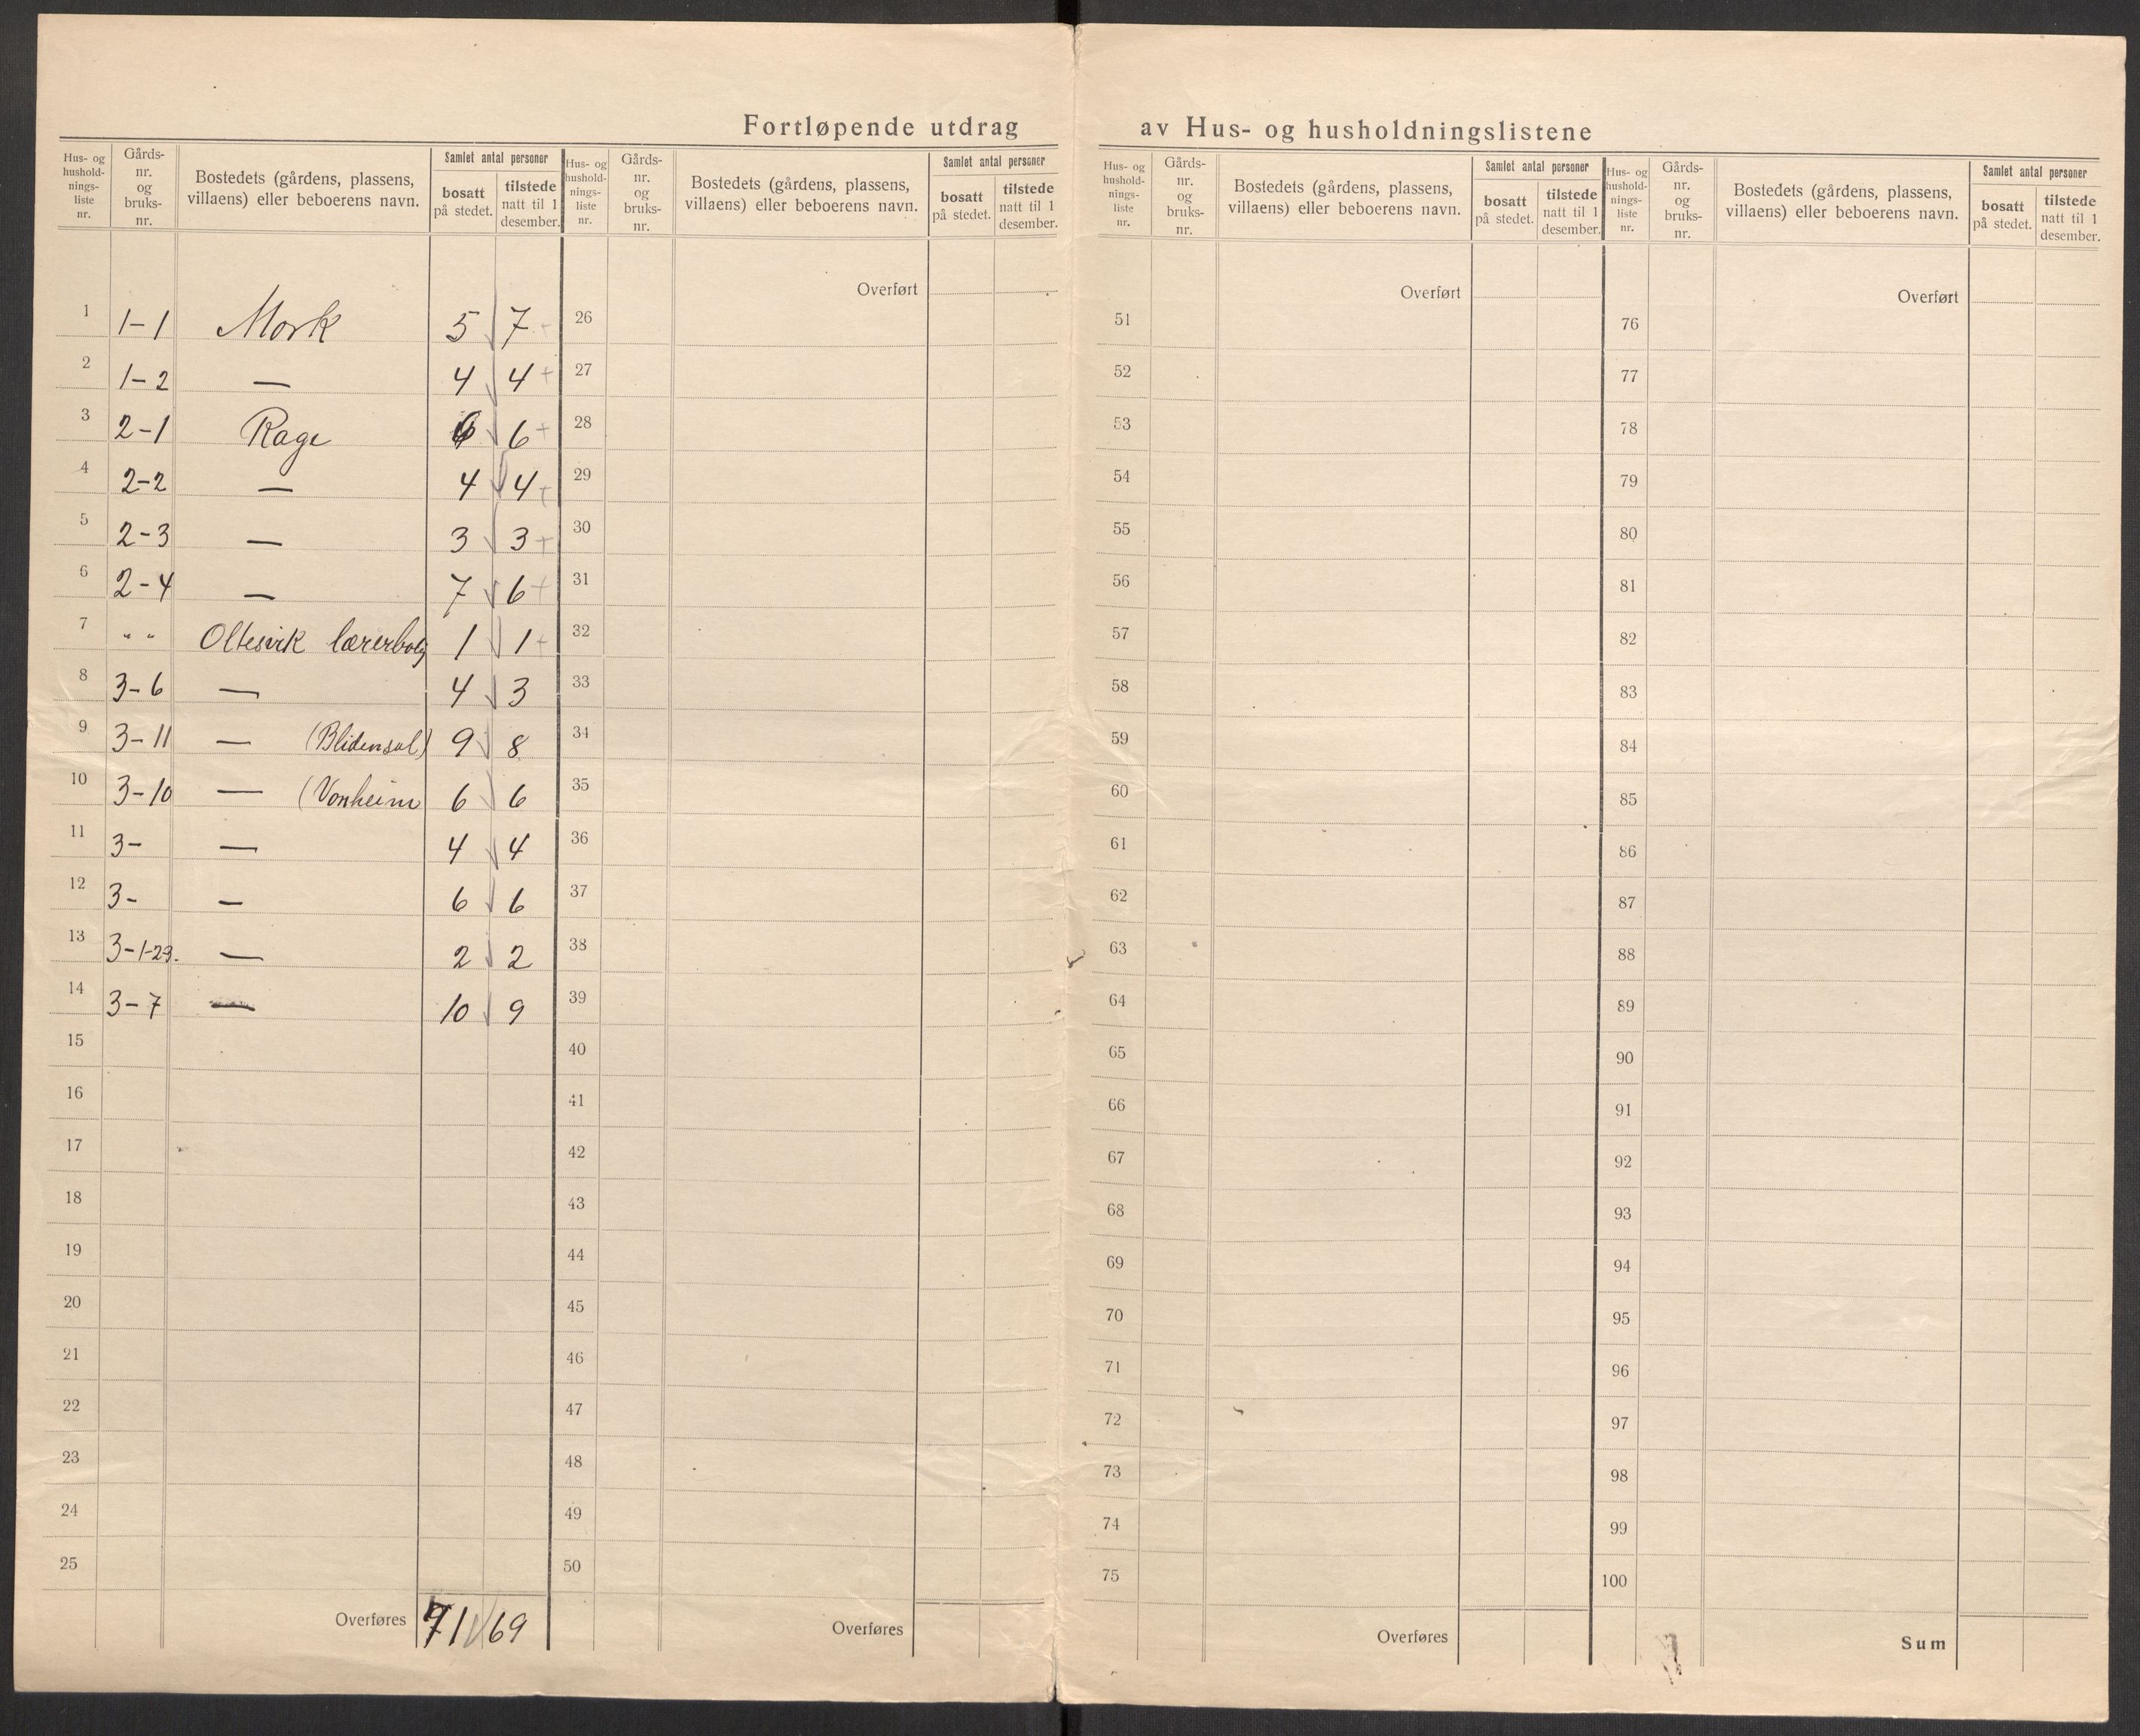 Fortløpende utdrag av Hus- og husholdningslistene
Hus- og hushold-nings-liste nr. | Gårds-nr. og bruks-nr. | Bostedets (gårdens, plassens, villaens) eller beboerens navn. | Samlet antal personer | bosatt på stedet. | tilstede natt til 1 desember.
1 | 1-1 | Mork | 5 | 7
2 | 1-2 | — | 4 | 4 +
3 | 2-1 | Rage | 6 | 6 +
4 | 2-2 | — | 4 | 4 +
5 | 2-3 | — | 3 | 3 +
6 | 2-4 | — | 7 | 6 +
7 | " " | Oltesvik lærerbolg | 1 | 1 +
8 | 3-6 | — | 4 | 3
9 | 3-11 | — (Blidensol) | 9 | 8
10 | 3-10 | — (Vonheim | 6 | 6
11 | 3- | — | 4 | 4
12 | 3- | — | 6 | 6
13 | 3-1-23. | — | 2 | 2
14 | 3-7 | — | 10 | 9
15
16
17
18
19
20
21
22
23
24
25
Overføres | 71 | 69
Hus- og hushold-nings-liste nr. | Gårds-nr. og bruks-nr. | Bostedets (gårdens, plassens, villaens) eller beboerens navn. | Samlet antal personer | bosatt på stedet. | tilstede natt til 1 desember.
Overført
26
27
28
29
30
31
32
33
34
35
36
37
38
39
40
41
42
43
44
45
46
47
48
49
50
Overføres
Hus- og hushold-nings-liste nr. | Gårds-nr. og bruks-nr. | Bostedets (gårdens, plassens, villaens) eller beboerens navn. | Samlet antal personer | bosatt på stedet. | tilstede natt til 1 desember.
Overført
51
52
53
54
55
56
57
58
59
60
61
62
63
64
65
66
67
68
69
70
71
72
73
74
75
Overføres
Hus- og hushold-nings-liste nr. | Gårds-nr. og bruks-nr. | Bostedets (gårdens, plassens, villaens) eller beboerens navn. | Samlet antal personer | bosatt på stedet. | tilstede natt til 1 desember.
Overført
76
77
78
79
80
81
82
83
84
85
86
87
88
89
90
91
92
93
94
95
96
97
98
99
100
Sum